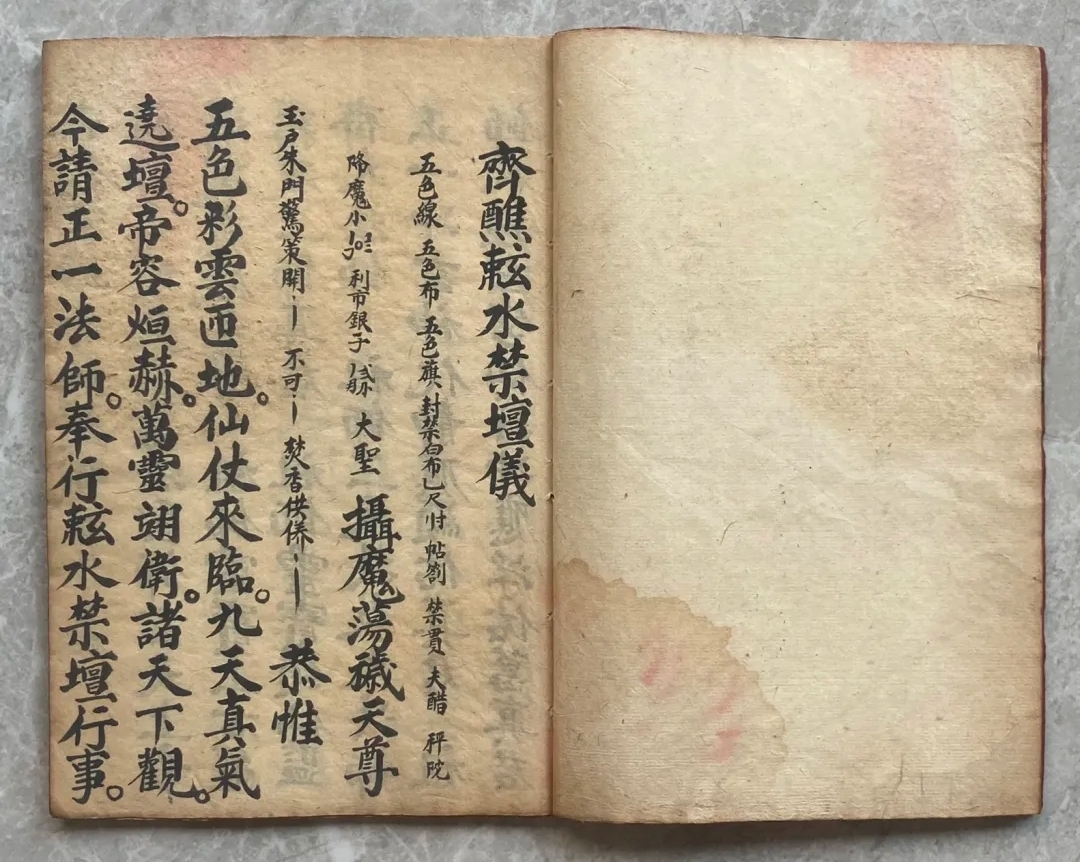 齊醮𫐄水禁壇儀
五色線 五色布 五色旗 封禁白布 尺 帖劄 禁貫 夫醋 秤
降魔小 利市銀子 大聖 攝魔蕩穢天尊
玉戶朱門驚策開 不可 焚香供侟 恭惟
五色彩雲迊地。仙仗來臨。九天真氣
遶壇。帝容烜赫。萬靈翊衛。諸天下觀。
今請正一法師。奉行𫐄水禁壇行事。